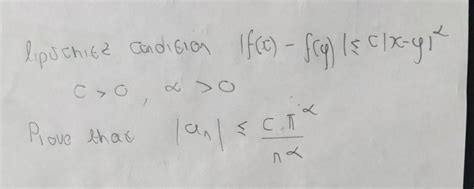 lipschitz condition |f(x) - f(y)| ≤ C|x-y|^α
C > 0 , α > 0
Prove that |a_n| ≤ \frac{C π^α}{n^α}